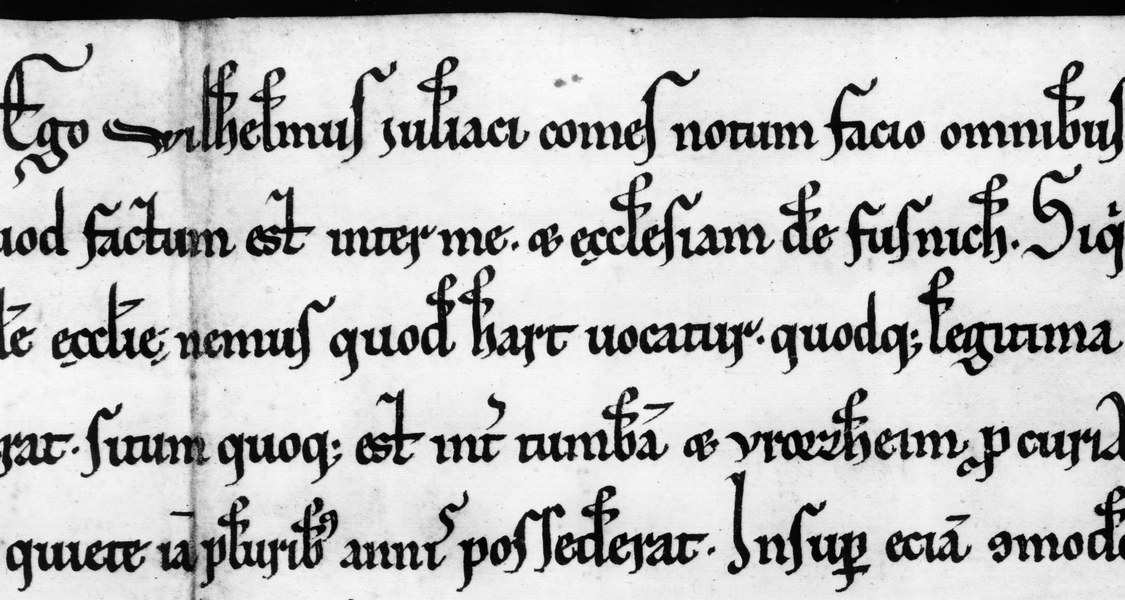 Ego Wilhelmus iuliaci comes notum facio omnibus
uod factum est inter me. & ęcclesiam de fusnich. Siq
le ęcclīę nemus quod hart uocatur. quodq; legitima
rat. situm quoq; est int̄ tumbā & vrœzheim, ꝑ curia
quiete iā pluribꝰ annis possederat. Insuꝑ eciā ꝯmod